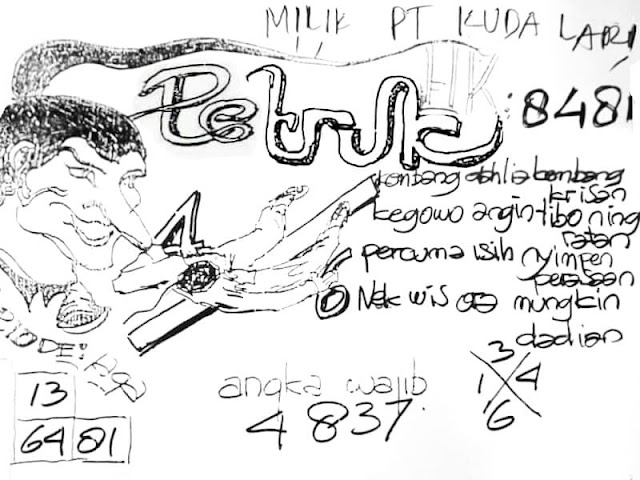 MILIK PT KUDA LARI
HK : 8481
Petruk
kembang dahlia kembang
krisan
kegowo angin tibo ning
ratan
percuma isih nyimpen
perasaan
Nek wis ora mungkin
dadian
4
0
KODE:
13
64 81
angka wajib
4 837
3
1 4
6